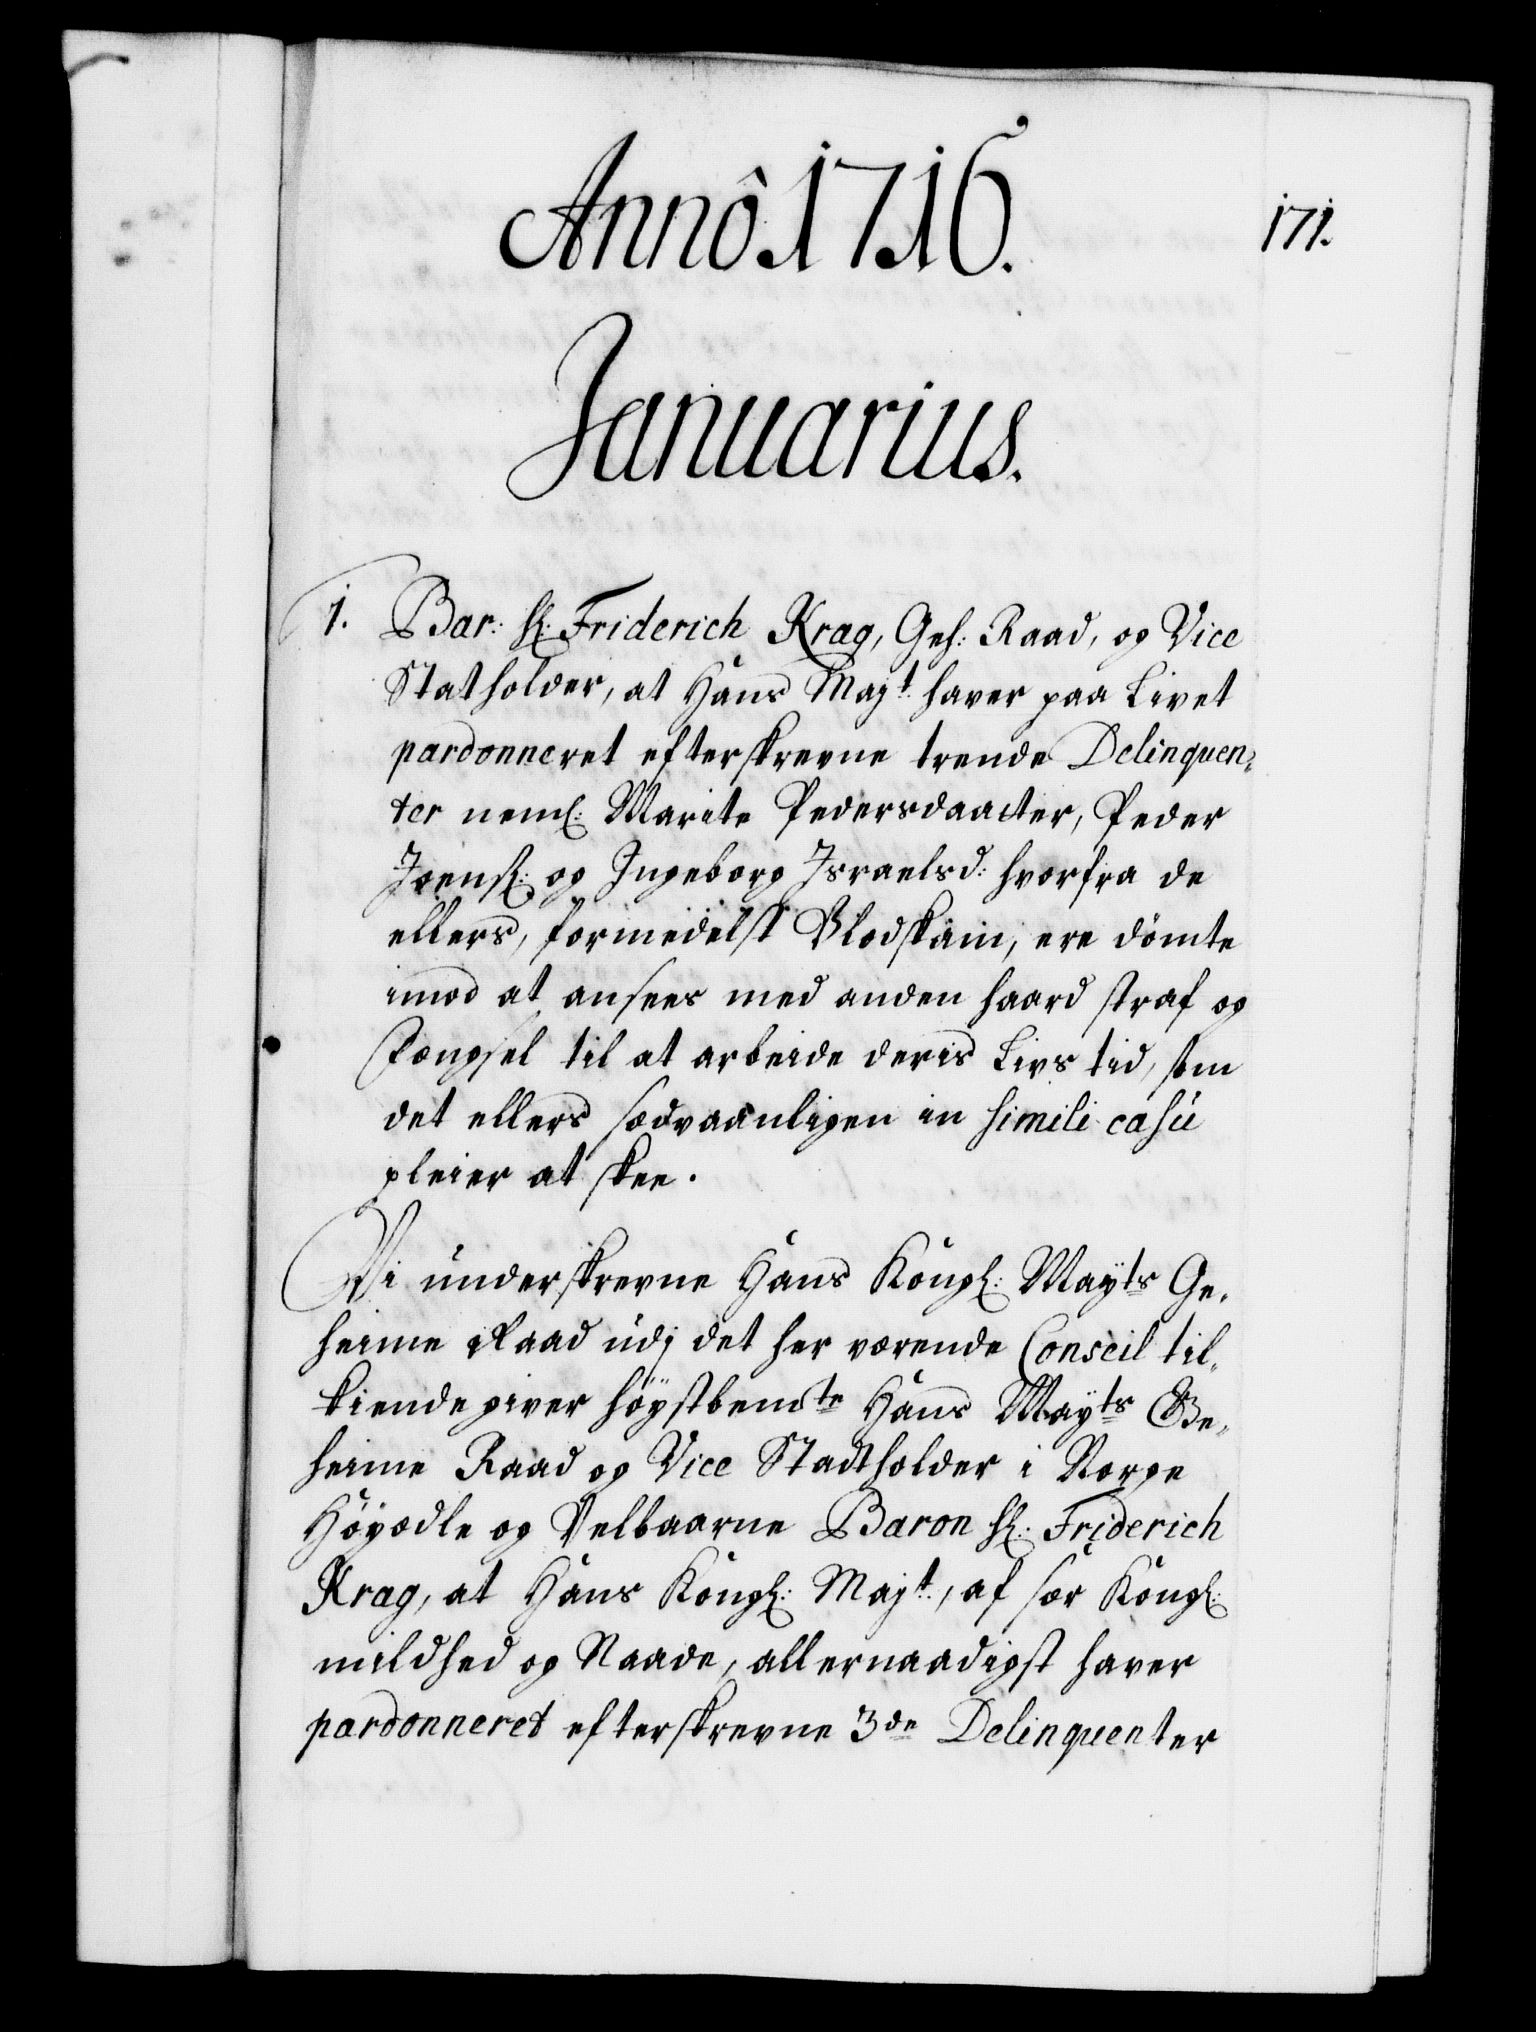 Annô 1716.
171.
Januarius.
1. Bar: Hr: Friderich Krag, Geh: Raad, og Vice
Statholder, at Hans Majt: haver paa Livet
pardonneret efterskrevne trende Delinquen-
ter neml: Marite Pedersdaatter, Peder
Joens: og Ingeborg Israelsd: hvorfra de
ellers, formedelst Blodskam, ere dömte
imod at ansees med anden haard straf og
Fængsel til at arbeide deris Livs tid, som
det ellers sædvaanligen in simili casu
pleier at skee.
Vi underskrevne Hans Kongl: Mayts Ge-
heime Raad udj det her værende Conseil til-
kiende giver höystbemte Hans Mayts Ge-
heime Raad og Vice Stadtholder i Norge
Höyædle og Velbaarne Baron Hr: Friderich
Krag, at Hans Kongl: Majt:, af sær Kongl:
mildhed og Naade, allernaadigst haver
pardonneret efterskrevne 3de Delinquenter